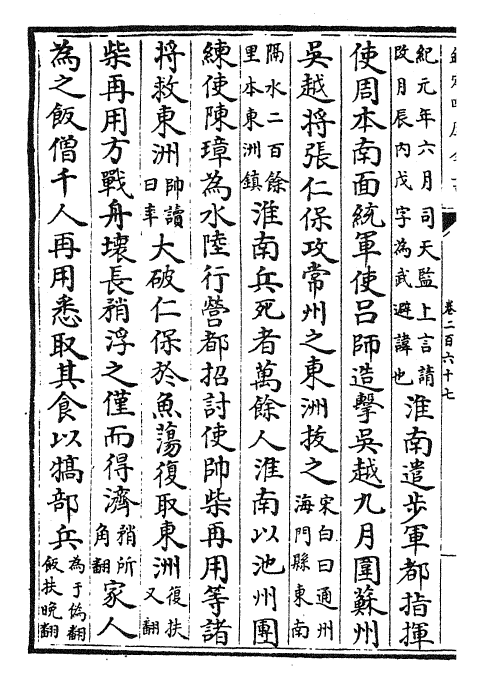 卷二百六十七
紀元年六月司天監上言請
改月辰内戊字為武避諱也
淮南遣步軍都指揮
使周本南面統軍使吕師造擊吳越九月圍蘇州
吳越將張仁保攻常州之東洲拔之
宋白曰通州
海門縣東南
隔水二百餘
里本東洲鎮
淮南兵死者萬餘人淮南以池州團
練使陳璋為水陸行營都招討使帥柴再用等諸
將救東洲
帥讀
曰率
大破仁保於魚蕩復取東洲
復扶
又翻
柴再用方戰舟壞長矟浮之僅而得濟
矟所
角翻
家人
為之飯僧千人再用悉取其食以犒部兵
為于偽翻
飯扶晚翻